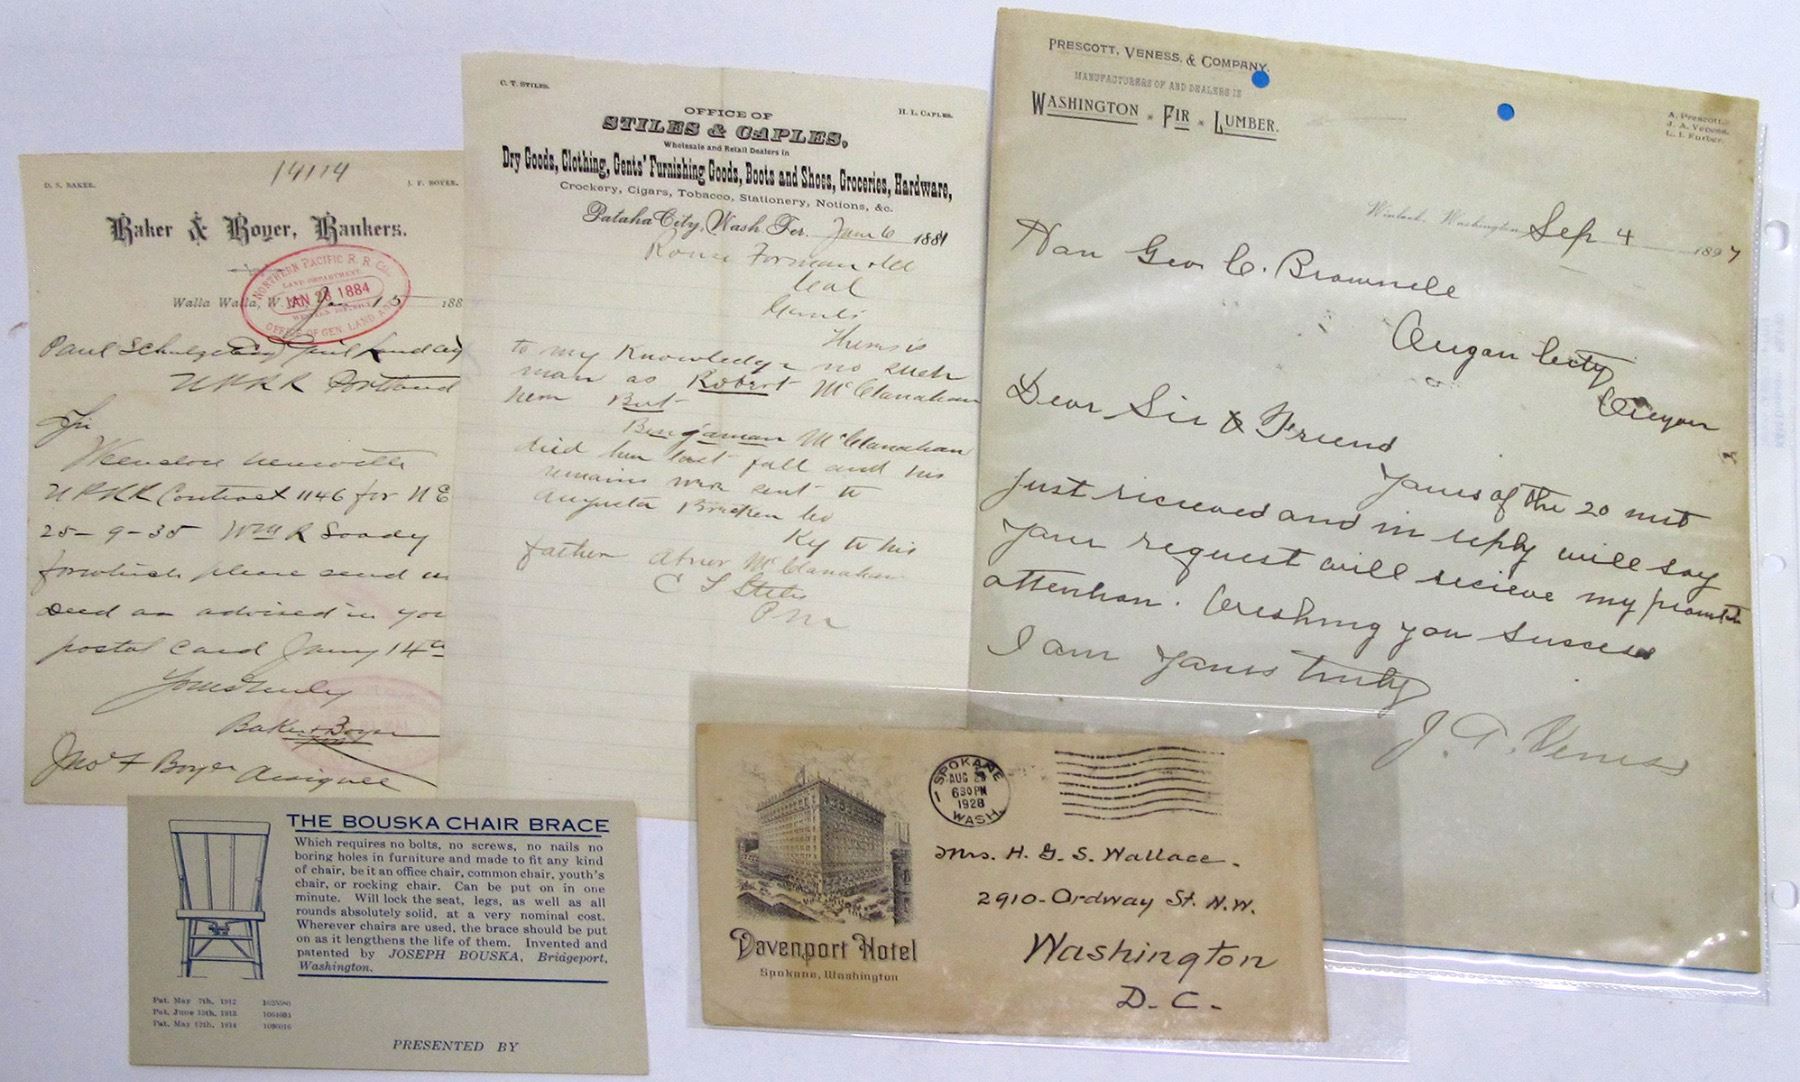 14114
D. S. BAKER. J. F. BOYER.
Baker & Boyer, Bankers.
NORTHERN PACIFIC R. R. CO.
LAND DEPARTMENT
JAN 28 1884
WESTERN DISTRICT
OFFICE OF GEN. LAND
Walla Walla, W. Jan 15 188
Paul Schulze
NPRR Portland
Sir
NPRR Contract 1146 for NE
25-9-35 Wm R
for which please send us
Deed as advised in you
postal Card Jany 14th
Yours truly
Baker & Boyer
Jno F Boyer Assignee
C. T. STILES. H. L. CAPLES.
OFFICE OF
STILES & CAPLES,
Wholesale and Retail Dealers in
Dry Goods, Clothing, Gents' Furnishing Goods, Boots and Shoes, Groceries, Hardware,
Crockery, Cigars, Tobacco, Stationery, Notions, &c.
Pataha City, Wash. Ter. 6 1881
Gents
There is
to my Knowledge no such
man as Robert McClanahan
here But
Benjaman McClanahan
died here last fall and his
remains was sent to
Augusta Bracken Co
Ky to his
father Abner McClanahan
C T Stiles
P M
PRESCOTT, VENESS, & COMPANY.
MANUFACTURERS OF AND DEALERS IN
WASHINGTON FIR LUMBER.
A. Prescott.
J. A. Veness.
L. I. Furber.
Winlock, Washington Sep 4 1897
Hon Geo C. Brownell
Oregon City
Oregon
Dear Sir & Friend
Yours of the 20 inst
Just recieved and in reply will say
your request will recieve my prompt
attention. Wishing you success
I am yours truly
J. A. Veness
THE BOUSKA CHAIR BRACE
Which requires no bolts, no screws, no nails no
boring holes in furniture and made to fit any kind
of chair, be it an office chair, common chair, youth's
chair, or rocking chair. Can be put on in one
minute. Will lock the seat, legs, as well as all
rounds absolutely solid, at a very nominal cost.
Wherever chairs are used, the brace should be put
on as it lengthens the life of them. Invented and
patented by JOSEPH BOUSKA, Bridgeport,
Washington.
Pat. May 7th, 1912
Pat. June 13th, 1913
Pat. May 12th, 1914
PRESENTED BY
SPOKANE
AUG 29
630 PM
1928
WASH.
1
Mrs. H. G. S. Wallace.
2910-Ordway St. N.W.
Washington
D. C.
Davenport Hotel
Spokane, Washington